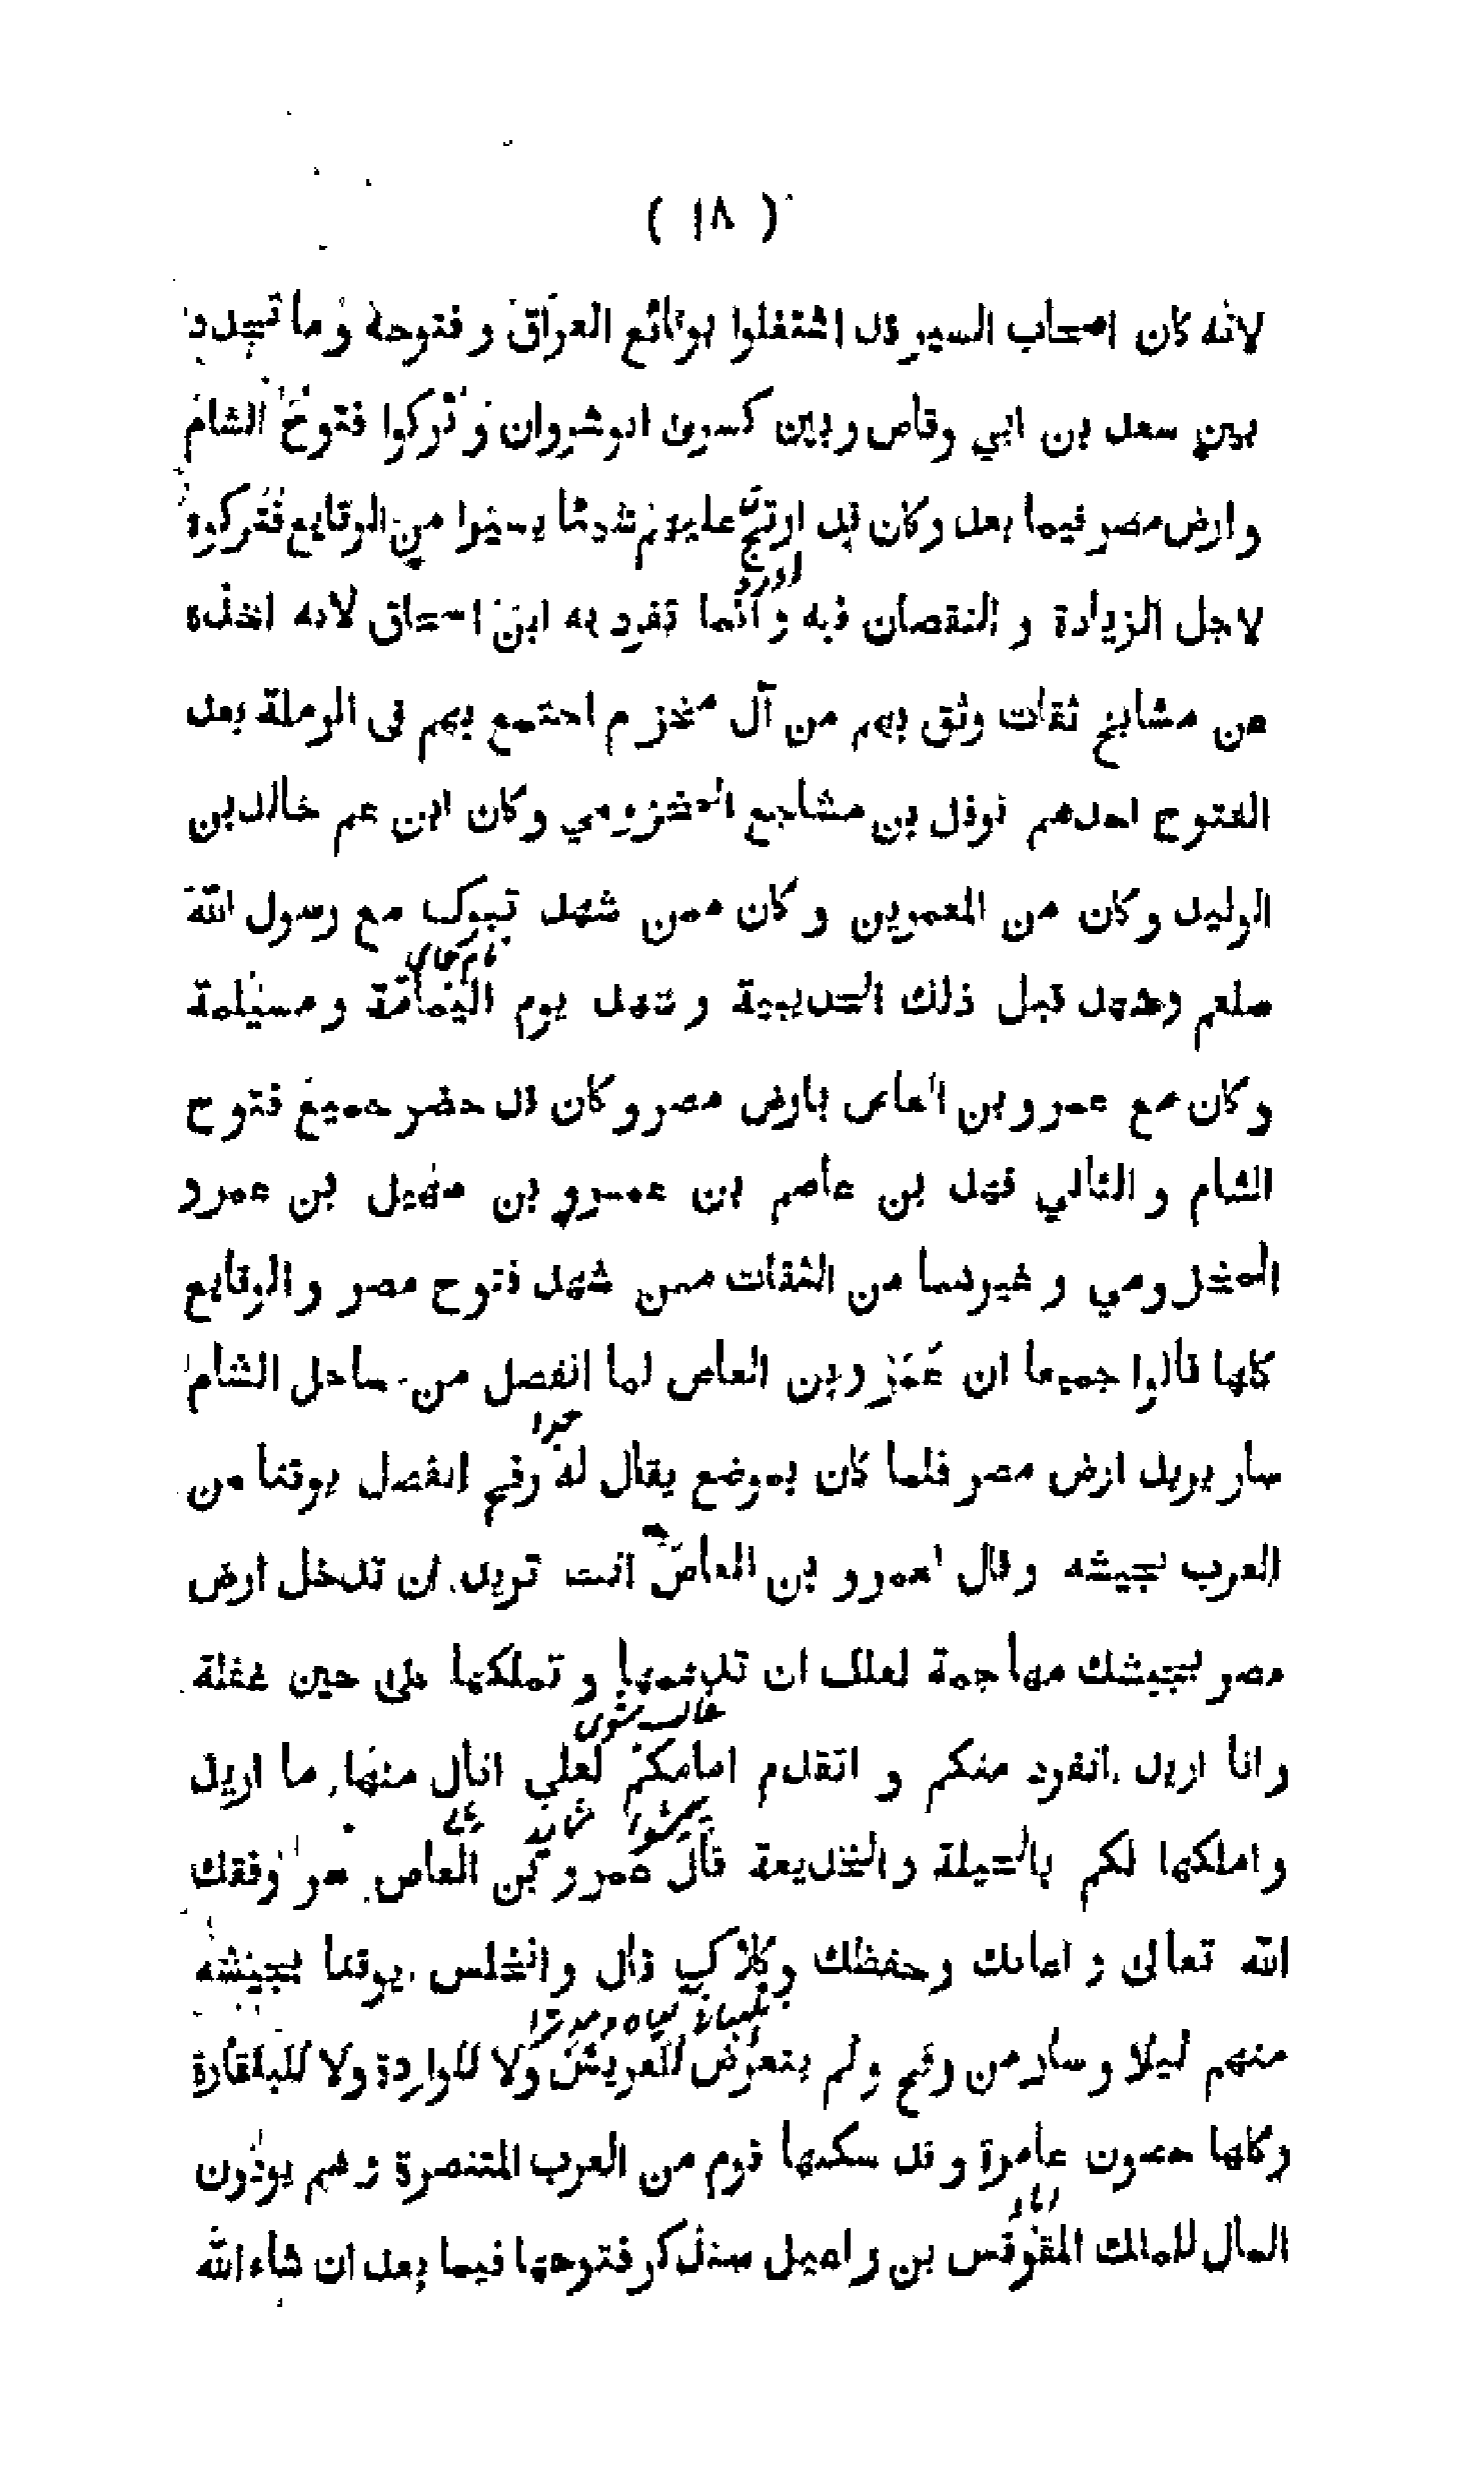 ( ١٨ )
لانه كان اصحاب السير قد اشتغلوا بوقائع العراق و فتوحه و ما تجدد
بين سعد بن ابي وقاص وبين كسرى انوشروان و تركوا فتوح الشام
وارض مصر فيما بعد وكان قد ارتج عليهم شدمّا يصخوا من الوقايع فتركوه
لاجل الزيادة و النقصان فيه و انما تفرد به ابن اسحاق لانه اخذه
من مشايخ ثقات وثق بهم من آل مخزوم اجتمع بهم فى الرملة بعد
الفتوح احدهم نوفل بن مشاجع المخزومي وكان ابن عم خالد بن
الوليد وكان من المعمرين وكان ممن شهد تبوك مع رسول الله
صلعم وشهد قبل ذلك الحديبية و شهد يوم اليمامة و مسيلمة
وكان مع عمرو بن العاص بارض مصر وكان قد حضر جميع فتوح
الشام و الثاني فهد بن عاصم بن عمرو بن سهيل بن عمرو
المخزومي و غيرهما من الثقات ممن شهد فتوح مصر و الوقايع
كلها قالوا جميعا ان عمرو بن العاص لما انفصل من ساحل الشام
جدا
سار يريد ارض مصر فلما كان بموضع يقال له رفح انفصل يوقنا من
العرب بجيشه وقال لعمرو بن العاص انت تريد ان تدخل ارض
مصر بجيشك مهاجمة لعلك ان تدهمها و تملكها على حين غفلة
غالب شوى
وانا اريد انفرد منكم و اتقدم امامكم لعلي انال منها ما اريد
واملكها لكم بالحيلة والخديعة قال عمرو بن العاص مر وفقك
الله تعالى و اعانك وحفظك وكلاك قال وانخلس يوقنا بجيشه
منهم ليلا وسار من رفح ولم يتعرض للعريش ولا للواردة ولا للبقارة
وكلها حصون عامرة وقد سكنها قوم من العرب المتنصرة و هم يودون
المال للمالك المقوقس بن راعيل سنذكر فتوحها فيما بعد ان شاء الله